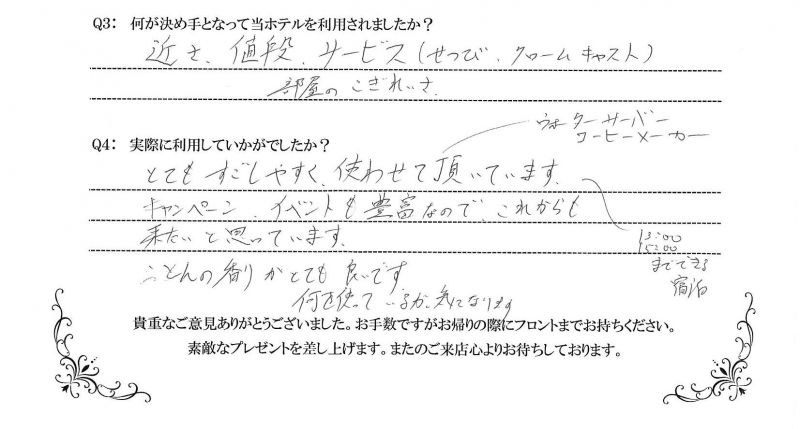 Q3： 何が決め手となって当ホテルを利用されましたか？
近さ、値段、サービス（せつび、クロームキャスト）
部屋のこぎれいさ
ウォーターサーバー
コーヒーメーカー
Q4： 実際に利用していかがでしたか？
とてもすごしやすく、使わせて頂いています。
キャンペーン、イベントも豊富なので、これからも
来たいと思っています。
13:00
15:00
までできる
宿泊
の香りがとても良いです
何を使っているか、気になります
貴重なご意見ありがとうございました。お手数ですがお帰りの際にフロントまでお持ちください。
素敵なプレゼントを差し上げます。またのご来店心よりお待ちしております。